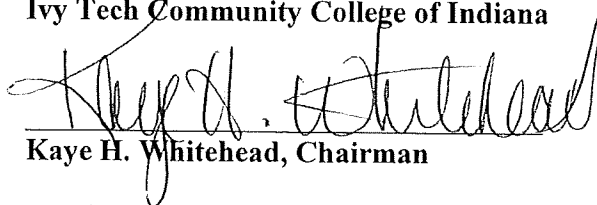 Ivy Tech Community College of Indiana
Kaye H. Whitehead
Kaye H. Whitehead, Chairman